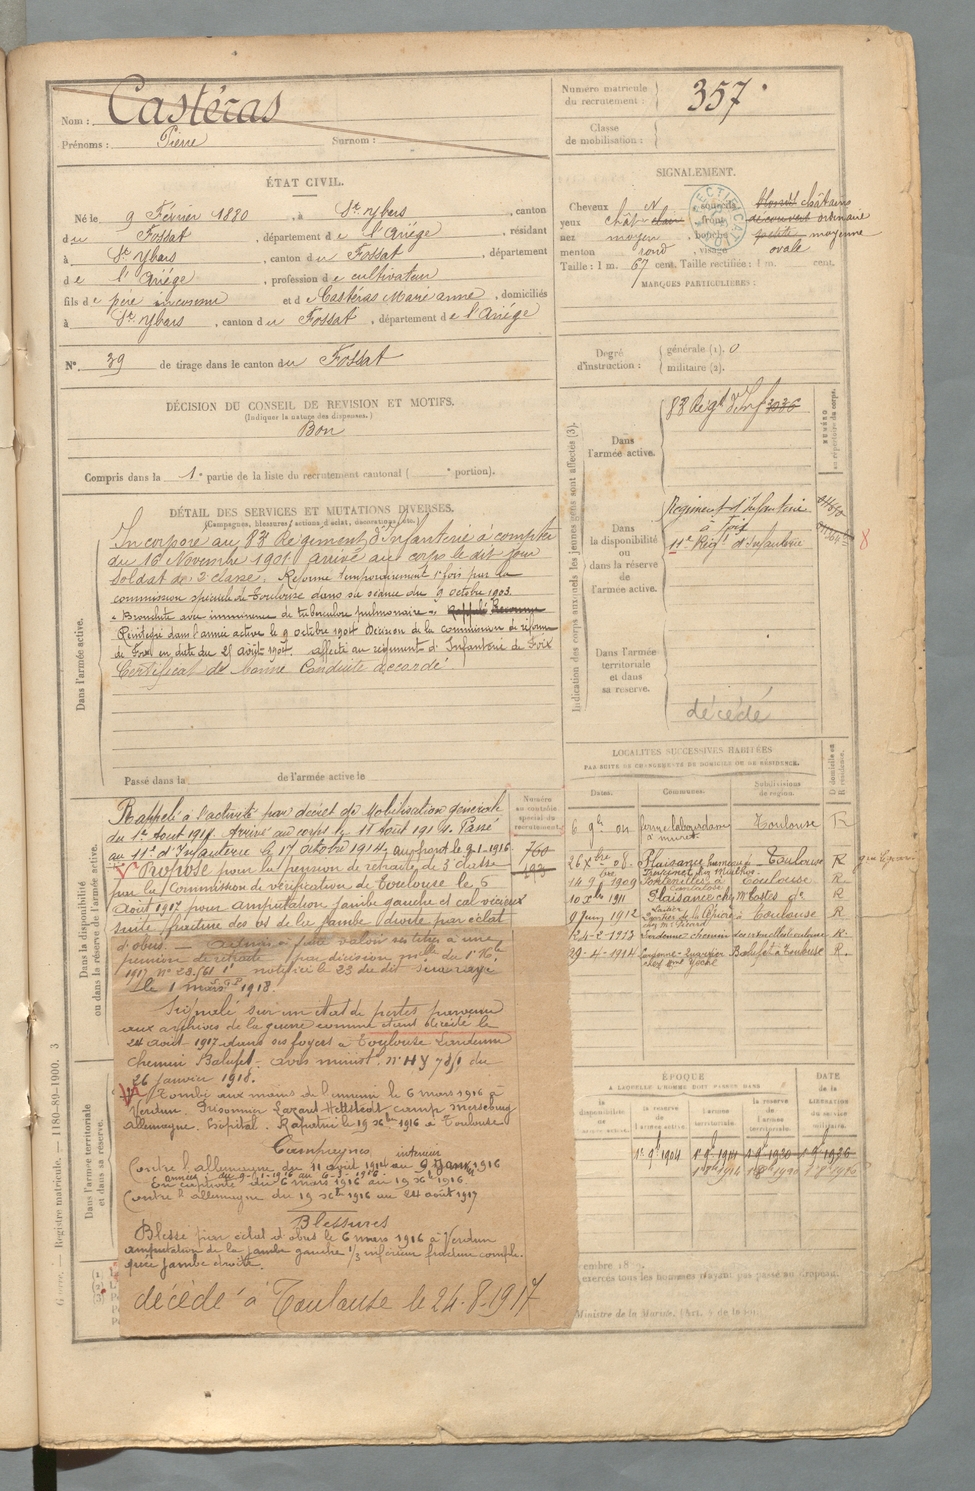 Nom : Castéras
Prénoms : Pierre Surnom :
Numéro matricule du recrutement : 357
Classe de mobilisation :
ÉTAT CIVIL.
Né le 9 Février 1880, à St Ybars, canton
du Fossat, département de l'Ariége, résidant
à St Ybars, canton du Fossat, département
de l'Ariége, profession de cultivateur
fils de père inconnu et de Castéras Marie anne, domiciliés
à St Ybars, canton du Fossat, département de l'Ariége
N° 39 de tirage dans le canton du Fossat
DÉCISION DU CONSEIL DE REVISION ET MOTIFS.
(Indiquer la nature des dispenses.)
Bon
Compris dans la 1e partie de la liste du recrutement cantonal ( e portion).
SIGNALEMENT.
Cheveux sourcils blonds châtains
yeux chât- clair front découvert ordinaire
nez moyen, bouche petite moyenne
menton rond, visage ovale
Taille : 1 m. 67 cent. Taille rectifiée : 1 m. cent.
MARQUES PARTICULIÈRES :
Degré d'instruction : générale (1). 0
militaire (2).
DÉTAIL DES SERVICES ET MUTATIONS DIVERSES.
(Campagnes, blessures, actions d'éclat, décorations, etc.)
Dans l'armée active.
Incorporé au 83e Régiment d'Infanterie à compter
du 16 Novembre 1901. Arrivé au corps le dit jour
soldat de 2e classe. Réformé temporairement 1e fois par la
commission spéciale de Toulouse dans sa séance du 9 octobre 1903.
"Bronchite avec imminence de tuberculose pulmonaire". Rappelé Reconnu
Réintégré dans l'armée active le 9 octobre 1904 Décision de la commission de réforme
de Foix en date du 25 août 1904. affecté au régiment d'Infanterie de Foix
Certificat de bonne Conduite accordé
Passé dans la de l'armée active le
Indication des corps auxquels les jeunes gens sont affectés (3).
NUMÉRO au répertoire du corps.
Dans l'armée active.
83 Régt d'Inf 3036
Dans la disponibilité ou dans la réserve de l'armée active.
Régiment d'Infanterie
à Foix
11e Régt d'Infanterie
8
Dans l'armée territoriale et dans sa réserve.
décédé
Dans la disponibilité ou dans la réserve de l'armée active.
Numéro au contrôle spécial du recrutement.
760
193
Rappelé à l'activité par décret de Mobilisation générale
du 1er Aout 1914. Arrivé au corps le 11 Août 1914. Passé
au 11e d'Infanterie le 17 octobre 1914. au front le 9-1-1916
Proposé pour la pension de retraite de 3e classe
par la Commission de vérification de Toulouse le 6
Août 1917 pour amputation jambe gauche et cal vicieux
suite fracture des os de la jambe droite par éclat
d'obus. — Admis à faire valoir ses titres à une
pension de retraite par décision mlle du
1917 notifiée le 23 du dit
le 1 mars 1918.
Signalé sur un état de pertes parvenu
aux archives de la guerre comme étant décédé le
24 août 1917 dans ses foyers à Toulouse Lardenne
Chemin Balufet. avis minist. n° HY du
26 janvier 1918.
Tombé aux mains de l'ennemi le 6 mars 1916 à
Verdun. Prisonnier Lazaret Hettstedt camp Merseburg
Allemagne. hôpital. Rapatrié le 19 Xbre 1916 à Toulouse
Campagnes
intérieur
Contre l'allemagne du 11 août 1914 au 9 Janv 1916
armées du 9-1-1916 au 6-3-1916.
En captivité du 6 mars 1916 au 19 Xbre 1916.
Contre l'allemagne du 19 Xbre 1916 au 24 août 1917
Blessures
Blessé par éclat d'obus le 6 mars 1916 à Verdun
amputation de la jambe gauche 1/3 inférieur fracture compli-
quée jambe droite.
décédé à Toulouse le 24-8-1917
Dans l'armée territoriale et dans sa réserve.
LOCALITÉS SUCCESSIVES HABITÉES
PAR SUITE DE CHANGEMENTS DE DOMICILE OU DE RÉSIDENCE.
Dates. Communes. Subdivisions de région. D domicile ou R résidence.
6 9bre 04 à Muret Toulouse R
26 Xbre 08 Plaisance Toulouse R
14 9bre 1909 Fontenilles à Toulouse R
10 Xbre 1911 Plaisance ch. M. Costes R
9 Janv 1912 à Toulouse R
24-2-1913 Lardenne chemin Toulouse R
29-4-1914 Lardenne Balufet à Toulouse R.
ÉPOQUE
À LAQUELLE L'HOMME DOIT PASSER DANS
la disponibilité de l'armée active. la réserve de l'armée active. l'armée territoriale. la réserve de l'armée territoriale.
DATE de la LIBÉRATION du service militaire.
1e 9bre 1904 1e 9bre 1914 1e 9bre 1920 1e 9bre 1926
1e 8bre 1914 1e 8bre 1920 1e 8bre 1926
Guerre. — Registre matricule. — 1180-89-1900. 3